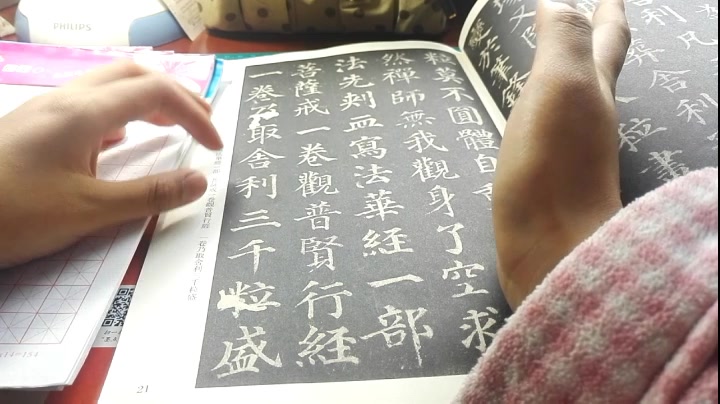 PHILIPS
利凡
舍利
又
粒書
於筆鋒
粒莫不圓體自
然禪師無我觀身了空求
法先刺血寫法華經一部
菩薩戒一卷觀普賢行経
一卷乃取舍利三千粒盛
21